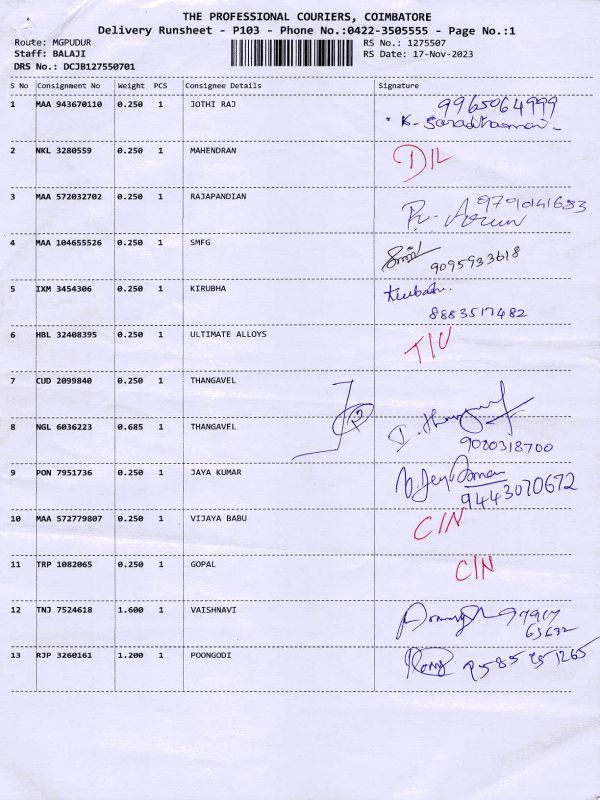 THE PROFESSIONAL COURIERS, COIMBATORE
Delivery Runsheet - P103 - Phone No.:0422-3505555 - Page No.:1
Route: MGPUDUR RS No.: 1275507
Staff: BALAJI RS Date: 17-Nov-2023
DRS No.: DCJB127550701
S No Consignment No Weight PCS Consignee Details Signature
1 MAA 943670110 0.250 1 JOTHI RAJ 9965064999
2 NKL 3280559 0.250 1 MAHENDRAN D/L
3 MAA 572032702 0.250 1 RAJAPANDIAN 9790141683
4 MAA 104655526 0.250 1 SMFG 9095933618
5 IXM 3454306 0.250 1 KIRUBHA
8883517482
6 HBL 32408395 0.250 1 ULTIMATE ALLOYS
7 CUD 2099840 0.250 1 THANGAVEL
8 NGL 6036223 0.685 1 THANGAVEL
9080318700
9 PON 7951736 0.250 1 JAYA KUMAR
9443070672
10 MAA 572779807 0.250 1 VIJAYA BABU C/N
11 TRP 1082065 0.250 1 GOPAL C/N
12 TNJ 7524618 1.600 1 VAISHNAVI
13 RJP 3260161 1.200 1 POONGODI